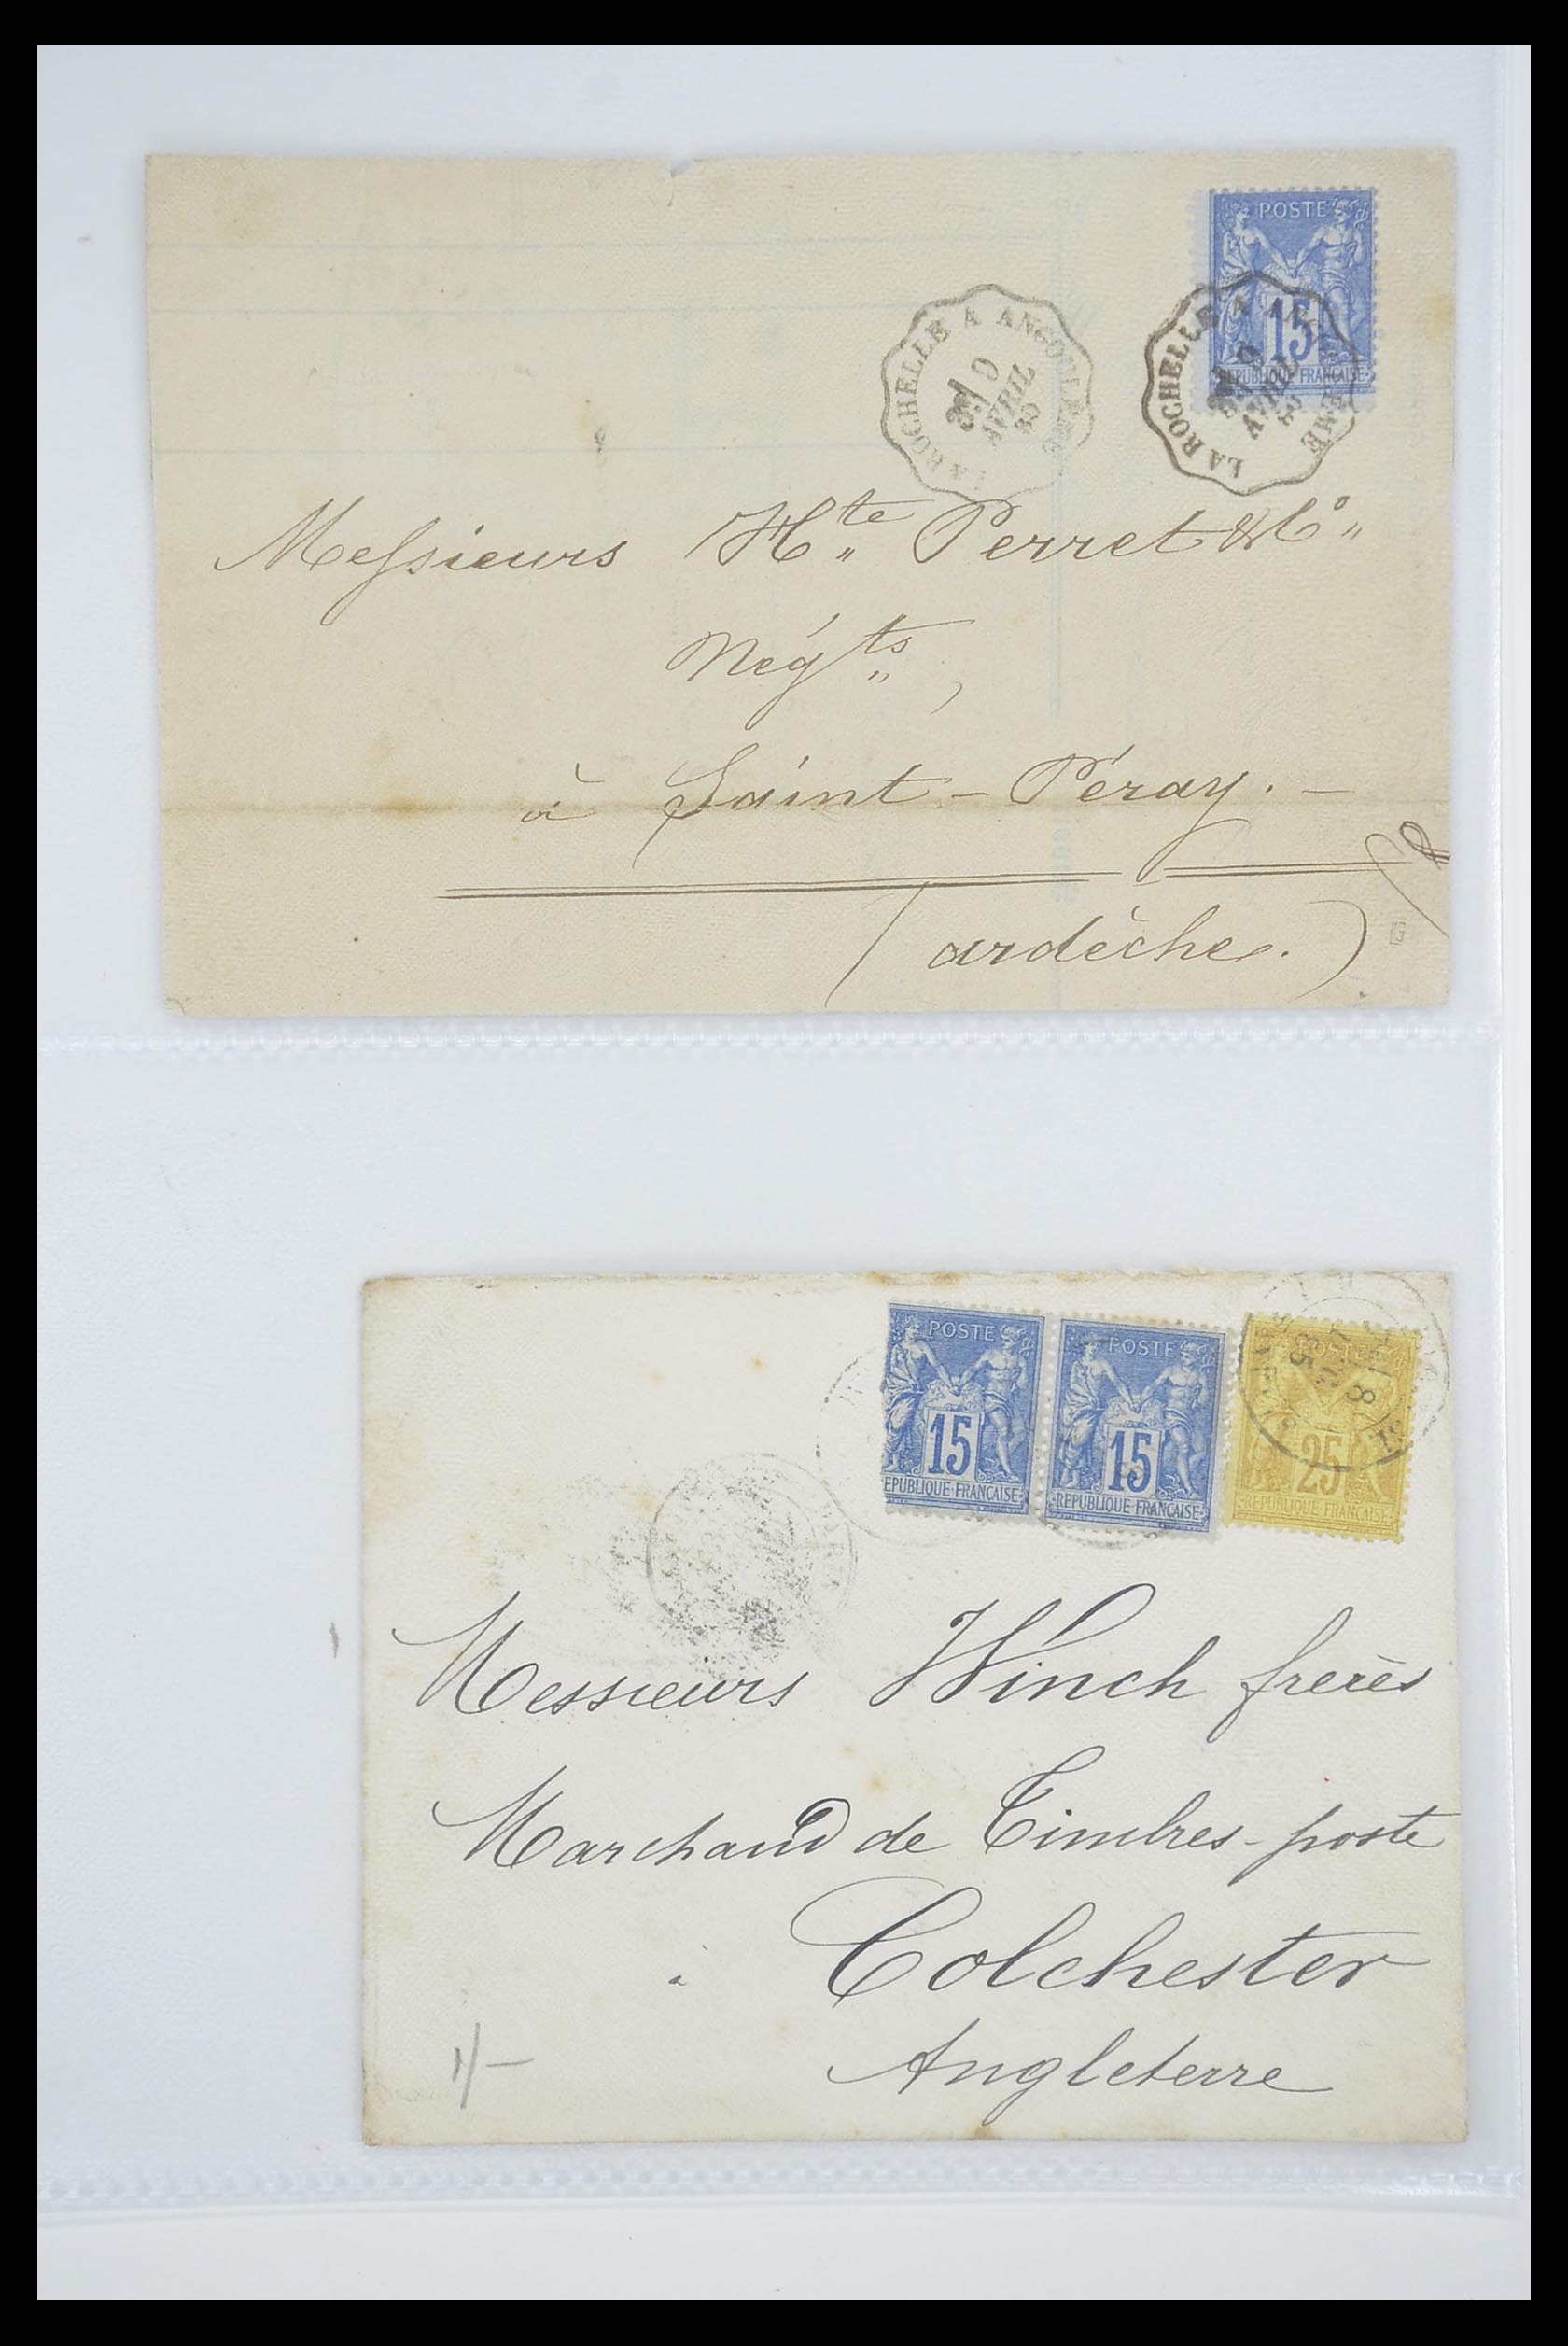 POSTE
15
REPUBLIQUE FRANCAISE
LA ROCHELLE A ANGOULEME
9
AVRIL
LA ROCHELLE A ANGOULEME
AVRIL
Messieurs Hte Perret & Co
Négts,
à Saint-Péray.-
(ardèche.)
POSTE
15
EPUBLIQUE FRANCAISE
POSTE
15
REPUBLIQUE FRANCAISE
POSTE
25
REPUBLIQUE FRANCAISE
Messieurs Winch frerès
Marchand de Timbres-poste
à Colchester
Angleterre
1/-